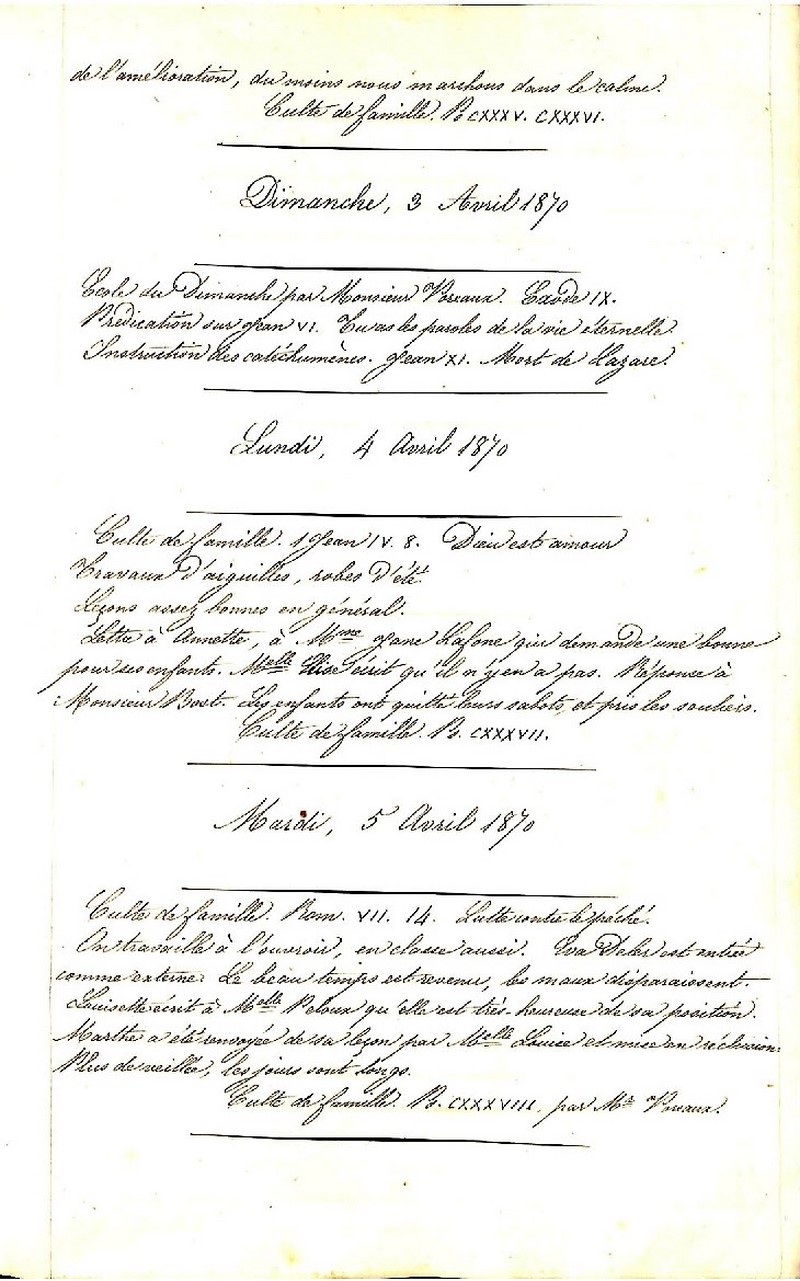 de l'amélioration, du moins nous marchons dans le calme.
Culte de famille. Ps CXXXV. CXXXVI.
Dimanche, 3 Avril 1870
Ecole du Dimanche par Monsieur Poreaux. Exode IX.
Prédication sur Jean VI. Tu as les paroles de la vie éternelle.
Instruction des catéchumènes. Jean XI. Mort de Lazare.
Lundi, 4 Avril 1870
Culte de famille. 1 Jean IV. 8. Dieu est amour
Travaux d'aiguilles, robes d'été.
Leçons assez bonnes en général.
Lettre à Annette, à Mme Jane Lafone qui demande une bonne
pour ses enfants. Melle Elise écrit qu'il n'y en a pas. Réponce à
Monsieur Bost. Les enfants ont quitté leurs sabots, et pris les souliers.
Culte de famille. Ps. CXXXVII.
Mardi, 5 Avril 1870
Culte de famille. Rom. VII. 14. Lutte contre le péché.
On travaille à l'ouvroir, en classe aussi. Eva est entrée
comme externe. Le beau temps est revenu, les maux disparaissent.
Louisette écrit à Melle Peloux qu'elle est très-heureuse de sa position.
Marthe a été renvoyée de sa leçon par Melle Louise et mise en réclusion.
Plus de veillée, les jours sont longs.
Culte de famille. Ps. CXXXVIII. par Mr Poreaux.